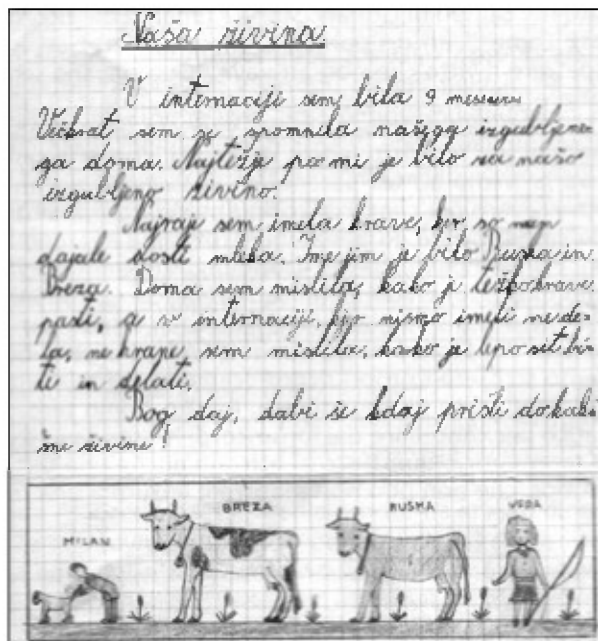 Naša živina
V internaciji sem bila 9 mesecev
Večkrat sem se spomnila našega izgubljene-
ga doma. Najtežje pa mi je bilo za našo
izgubljeno živino.
Najraje sem imela krave, ker so nam
dajale dosti mleka. Ime jim je bilo Ruska in
Breza. Doma sem mislila, kako je težko krave
pasti, a v internaciji, kjer nismo imeli ne de-
la, ne hrane, sem mislila, kako je lepo sit bi-
ti in delati.
Bog daj, dabi še kdaj prišli do kak-
šne živine!
MILAN
BREZA
RUSKA
VERA